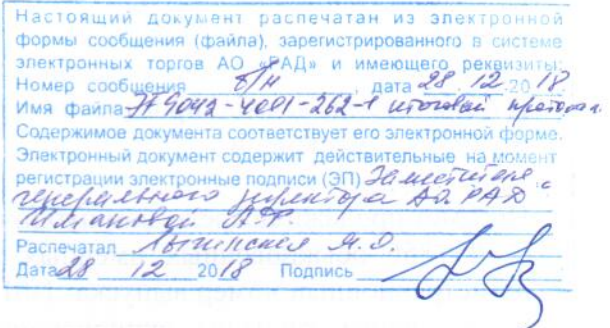 Настоящий документ распечатан из электронной
формы сообщения (файла), зарегистрированного в системе
электронных торгов АО «РАД» и имеющего реквизиты:
Номер сообщения б/н, дата 28.12.2018.
Имя файла итоговый протокол.
Содержимое документа соответствует его электронной форме.
Электронный документ содержит действительные на момент
регистрации электронные подписи (ЭП) Заместителя
генерального директора АО РАД
Распечатал
Дата 28 12 2018 Подпись